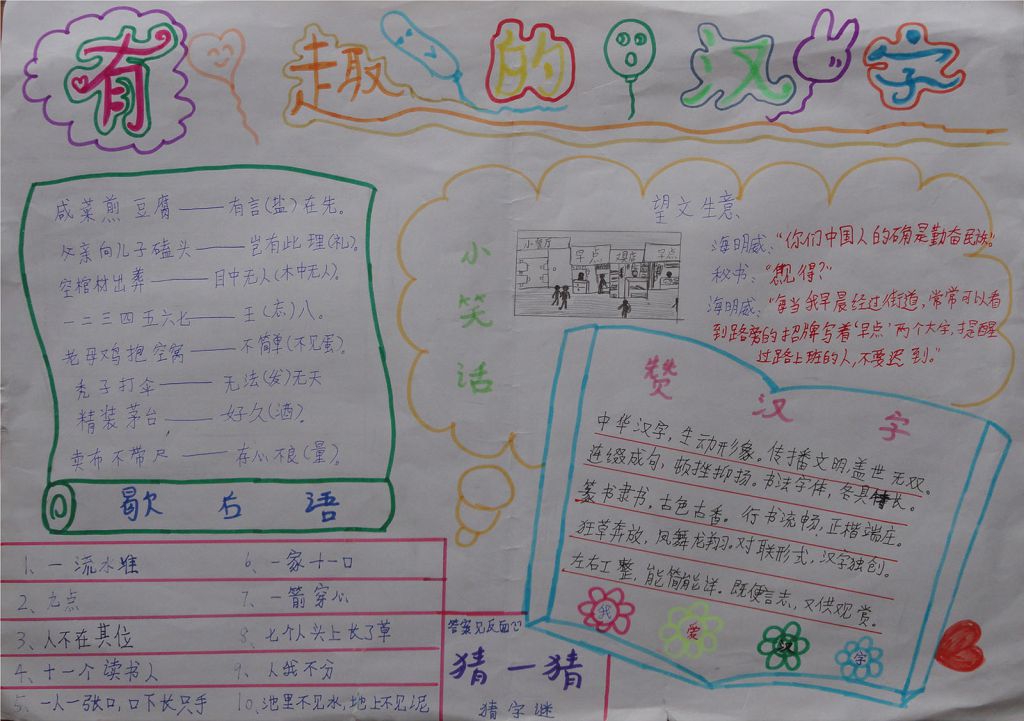 有趣的汉字
咸菜煎豆腐——有言(盐)在先。
父亲向儿子磕头——岂有此理(礼)。
空棺材出葬——目中无人(木中无人)。
一二三四五六七——王(忘)八。
老母鸡抱空窝——不简单(不见蛋)。
秃子打伞——无法(发)无天
精装茅台——好久(酒)。
卖布不带尺——存心不良(量)。
歇后语
小笑话
望文生意
海明威:“你们中国人的确是勤奋民族”
秘书:“
得?”
海明威:“每当我早晨经过街道,常常可以看
到路旁的招牌写着‘早点’两个大字,提醒
过路上班的人,不要迟到。”
小餐厅
早点
早点
赞汉字
中华汉字,生动形象。传播文明,盖世无双。
连缀成句,顿挫抑扬。书法字体,各具特长。
篆书隶书,古色古香。行书流畅,正楷端庄。
狂草奔放,凤舞龙翔。对联形式,汉字独创。
左右工整,能简能详。既便言志,又供观赏。
我爱汉字
1、一流水准
2、九点
3、人不在其位
4、十一个读书人
5、一人一张口,口下长只手
6、一家十一口
7、一箭穿心
8、七个人头上长了草
9、人我不分
10、池里不见水,地上不见泥
答案见反面
猜一猜
猜字谜